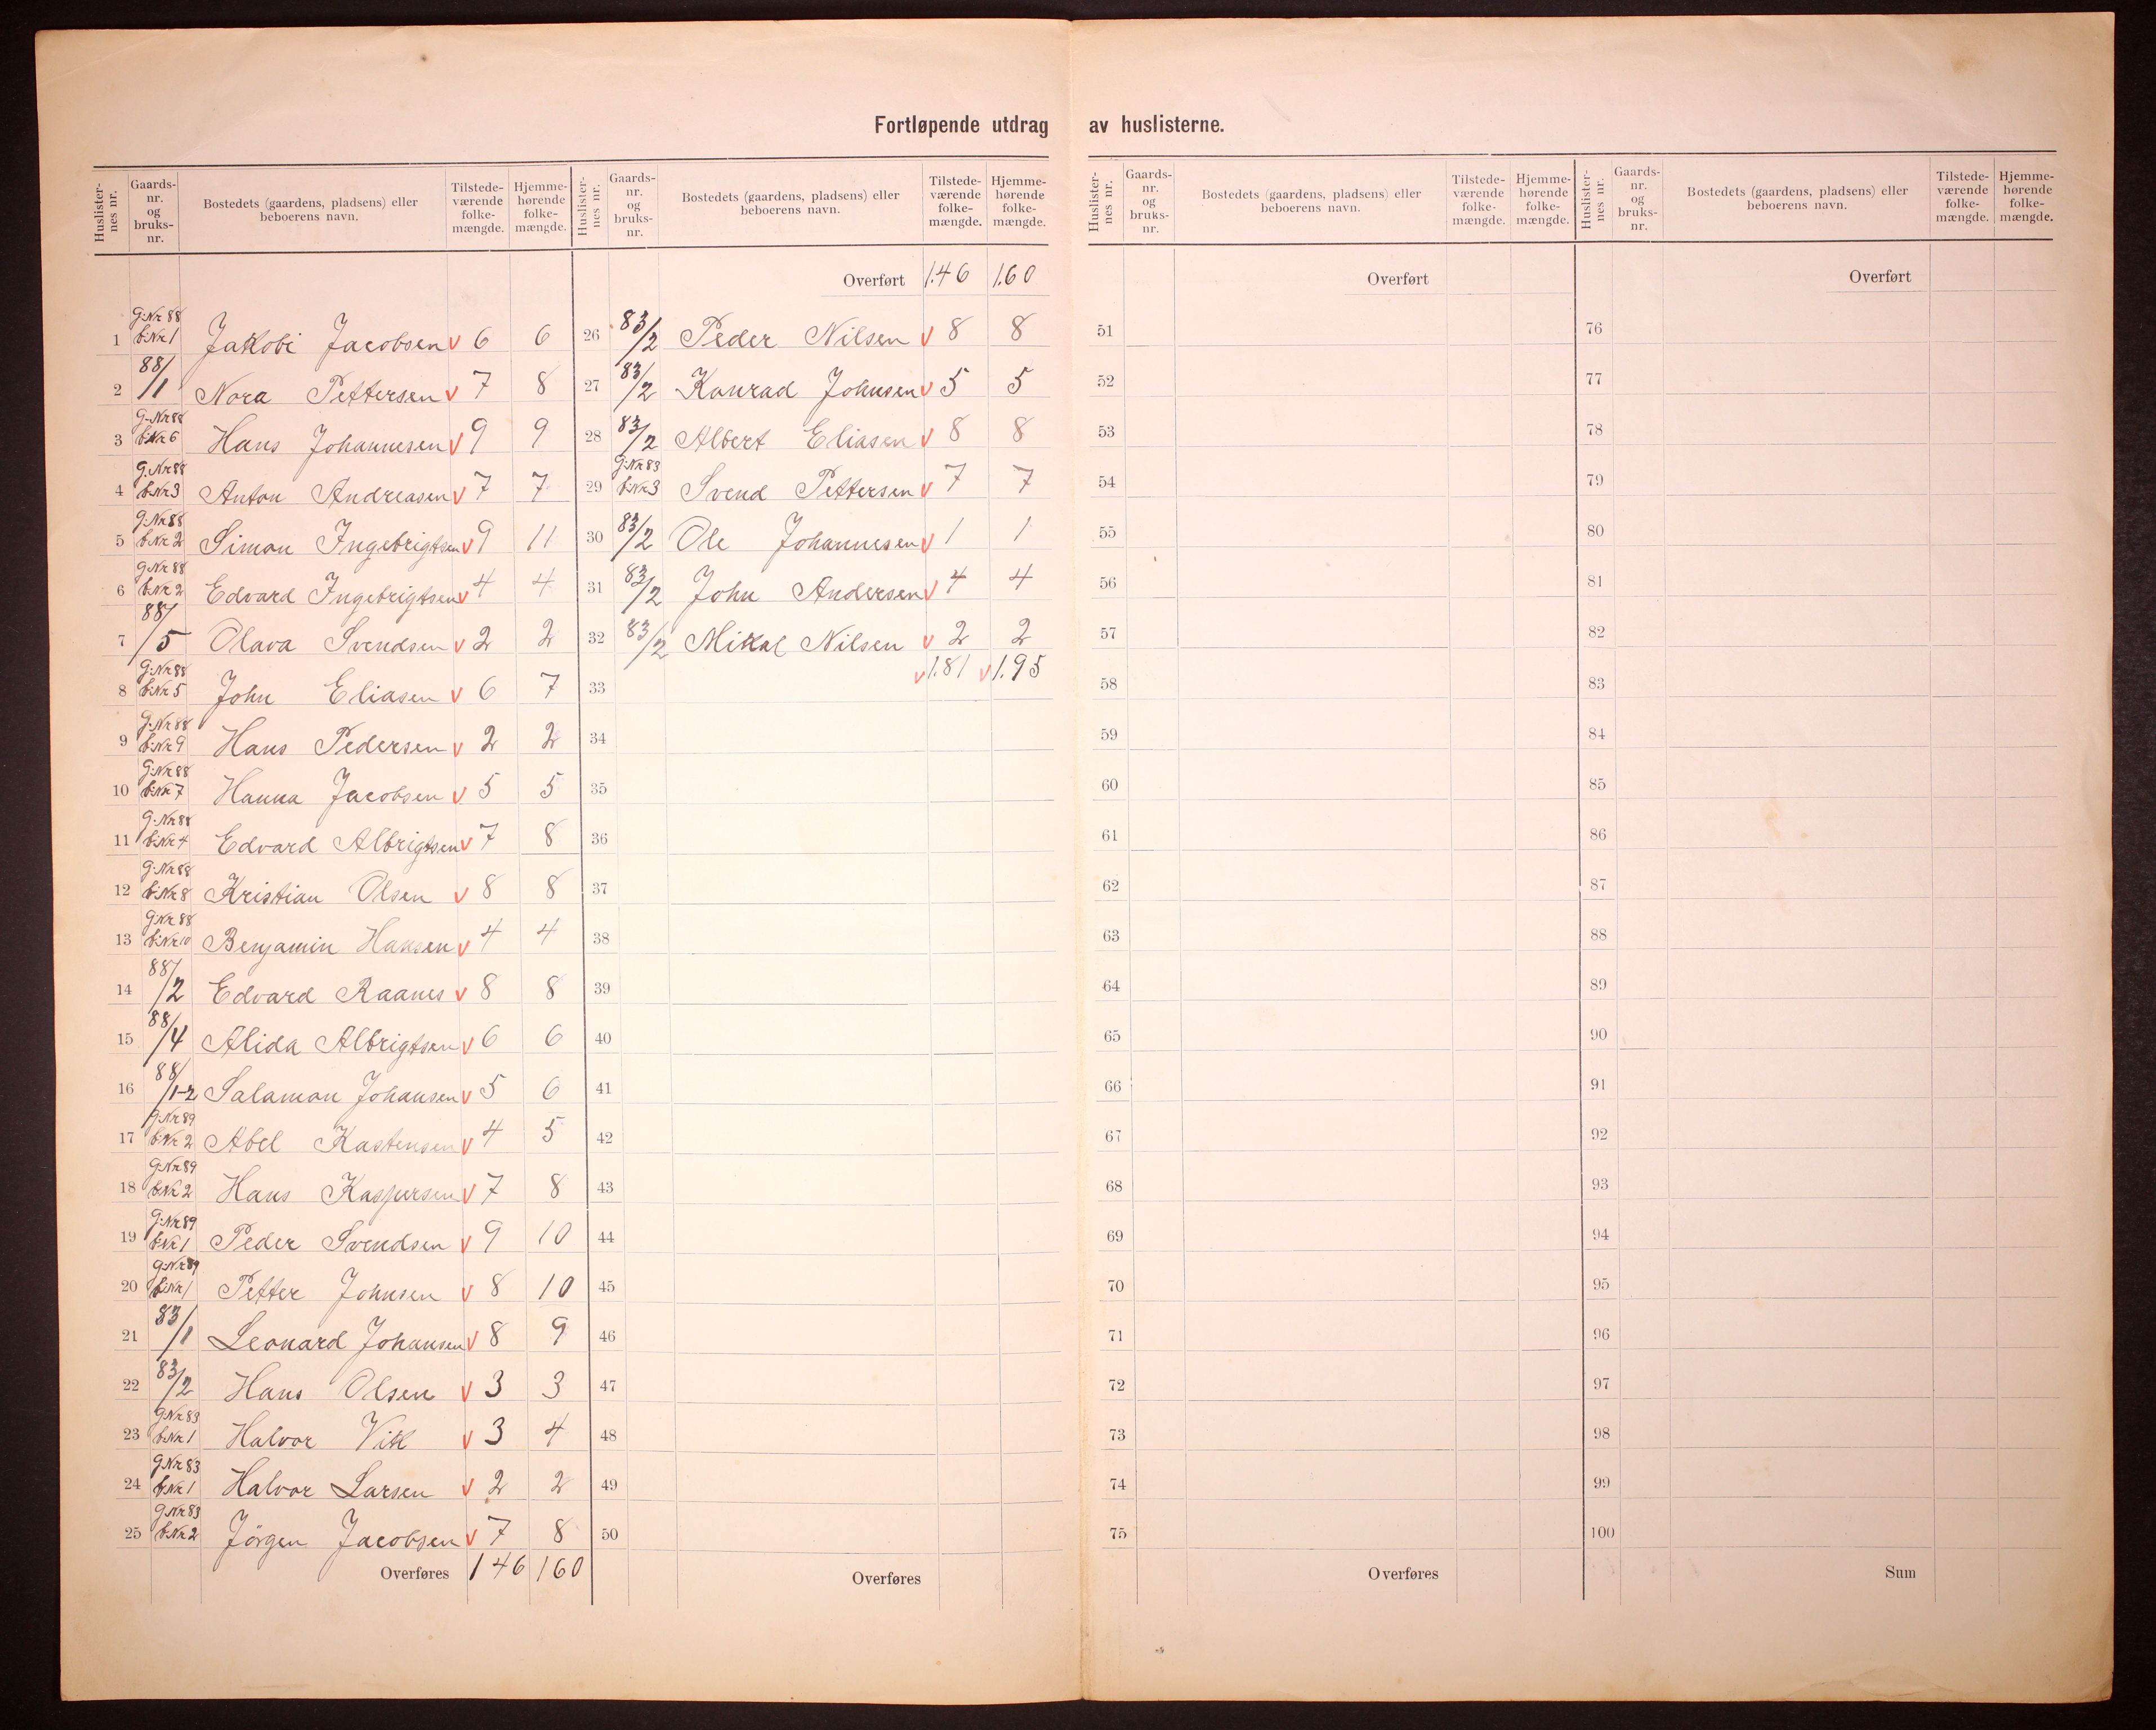 Fortløpende utdrag av huslisterne.
Huslister-nes nr. Gaards-nr. og bruks-nr. Bostedets (gaardens, pladsens) eller beboerens navn. Tilstede-værende folke-mængde. Hjemme-hørende folke-mængde.
1 G:Nr 88 b:Nr 1 Jakobi Jacobsen v 6 6
2 88/1 Nora Pettersen v 7 8
3 G:Nr 88 b:Nr 6 Hans Johannesen v 9 9
4 G:Nr 88 b:Nr 3 Anton Andreasen v 7 7
5 G:Nr 88 b:Nr 2 Simon Ingebrigtsen v 9 11
6 G:Nr 88 b:Nr 2 Edvard Ingebrigtsen v 4 4
7 88/5 Olava Svendsen v 2 2
8 G:Nr 88 b:Nr 5 John Eliasen v 6 7
9 G:Nr 88 b:Nr 9 Hans Pedersen v 2 2
10 G:Nr 88 b:Nr 7 Hanna Jacobsen v 5 5
11 G:Nr 88 b:Nr 4 Edvard Albrigtsen v 7 8
12 G:Nr 88 b:Nr 8 Kristian Olsen v 8 8
13 G:Nr 88 b:Nr 10 Benjamin Hansen v 4 4
14 88/2 Edvard Raanes v 8 8
15 88/4 Alida Albrigtsen v 6 6
16 88/1-2 Salamon Johansen v 5 6
17 G:Nr 89 b:Nr 2 Abel Kastensen v 4 5
18 G:Nr 89 b:Nr 2 Hans Kaspersen v 7 8
19 G:Nr 89 b:Nr 1 Peder Svendsen v 9 10
20 G:Nr 89 b:Nr 1 Petter Johnsen v 8 10
21 83/1 Leonard Johansen v 8 9
22 83/2 Hans Olsen v 3 3
23 G:Nr 83 b:Nr 1 Halvor Vik v 3 4
24 G:Nr 83 b:Nr 1 Halvor Larsen v 2 2
25 G:Nr 83 b:Nr 2 Jörgen Jacobsen v 7 8
Overføres 146 160
Huslister-nes nr. Gaards-nr. og bruks-nr. Bostedets (gaardens, pladsens) eller beboerens navn. Tilstede-værende folke-mængde. Hjemme-hørende folke-mængde.
Overført 1.46 1.60
26 83/2 Peder Nilsen v 8 8
27 83/2 Konrad Johnsen v 5 5
28 83/2 Albert Eliasen v 8 8
29 G:Nr 83 b:Nr 3 Svend Pettersen v 7 7
30 83/2 Ole Johannesen v 1 1
31 83/2 John Andersen v 4 4
32 83/2 Mikal Nilsen v 2 2
33 v 1.81 v 1.95
34
35
36
37
38
39
40
41
42
43
44
45
46
47
48
49
50
Overføres
Huslister-nes nr. Gaards-nr. og bruks-nr. Bostedets (gaardens, pladsens) eller beboerens navn. Tilstede-værende folke-mængde. Hjemme-hørende folke-mængde.
Overført
51
52
53
54
55
56
57
58
59
60
61
62
63
64
65
66
67
68
69
70
71
72
73
74
75
Overføres
Huslister-nes nr. Gaards-nr. og bruks-nr. Bostedets (gaardens, pladsens) eller beboerens navn. Tilstede-værende folke-mængde. Hjemme-hørende folke-mængde.
Overført
76
77
78
79
80
81
82
83
84
85
86
87
88
89
90
91
92
93
94
95
96
97
98
99
100
Sum